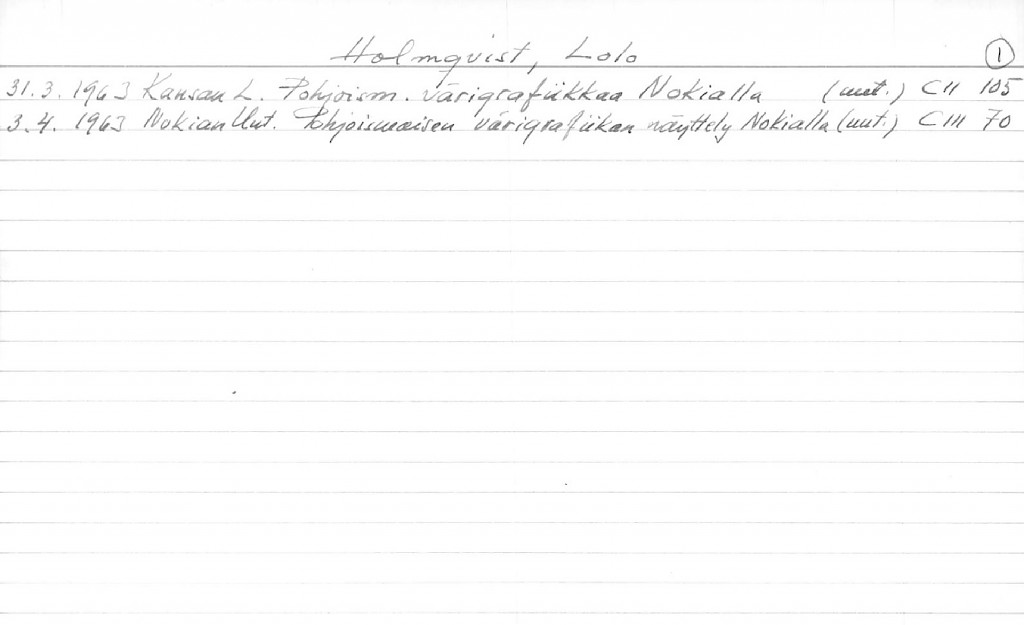 Holmqvist, Lolo 1
31.3.1963 Kansan L. Pohjoism. värigrafiikkaa Nokialla (uut.) CII 105
3.4.1963 Nokian Uut. Pohjoismaisen värigrafiikan näyttely Nokialla (uut.) CIII 70